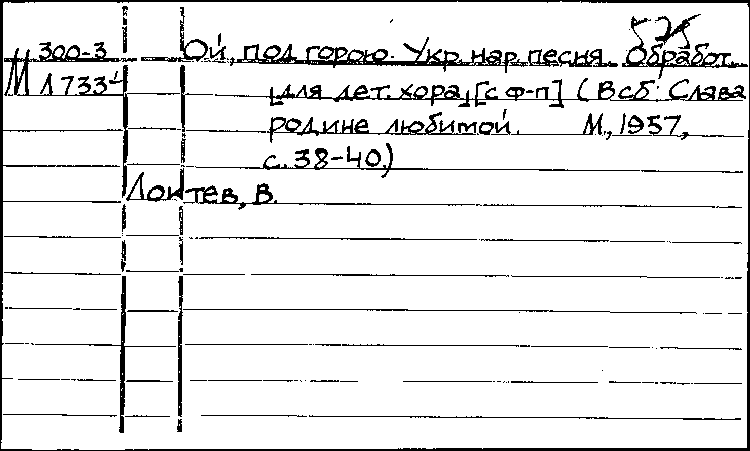 575
М 300-3 Ой, под горою. Укр. нар. песня. Обработ.
Л 733 [для дет. хора] [с ф-п] (В сб: Слава
родине любимой. М., 1957,
с. 38-40.)
Локтев, В.